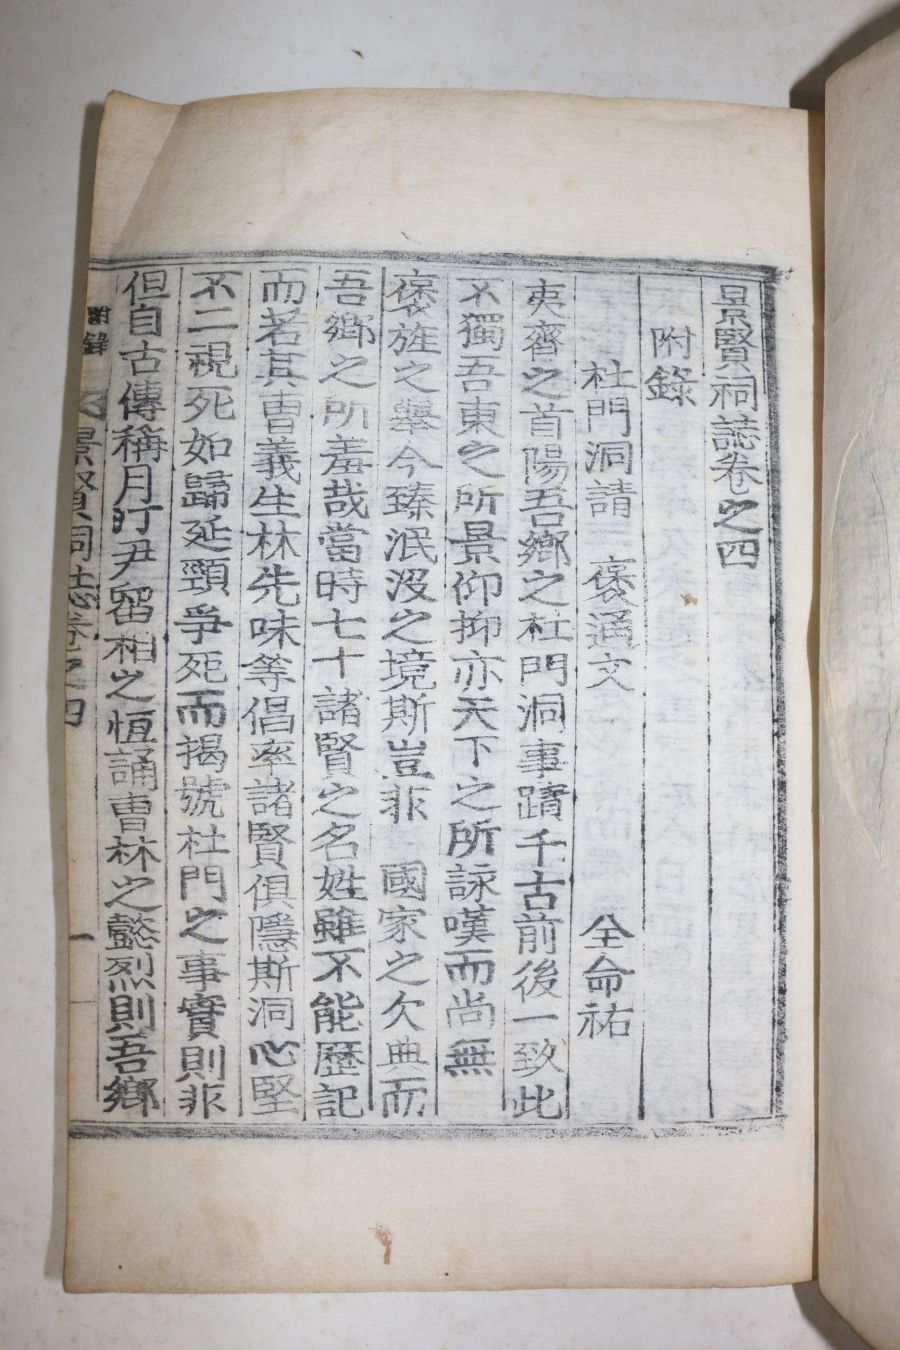 景賢祠誌卷之四
附錄
杜門洞請 褒通文 全命祐
夷齊之首陽吾鄕之杜門洞事蹟千古前後一致此
不獨吾東之所景仰抑亦天下之所詠嘆而尚無
褒旌之擧今臻泯沒之境斯豈非 國家之欠典而
吾鄕之所羞哉當時七十諸賢之名姓雖不能歷記
而若其曺義生林先味等倡率諸賢俱隱斯洞心堅
不二視死如歸延頸爭死而揭號杜門之事實則非
但自古傳稱月汀尹留相之恒誦曺林之懿烈則吾鄕
附錄 景賢祠誌卷之四 一